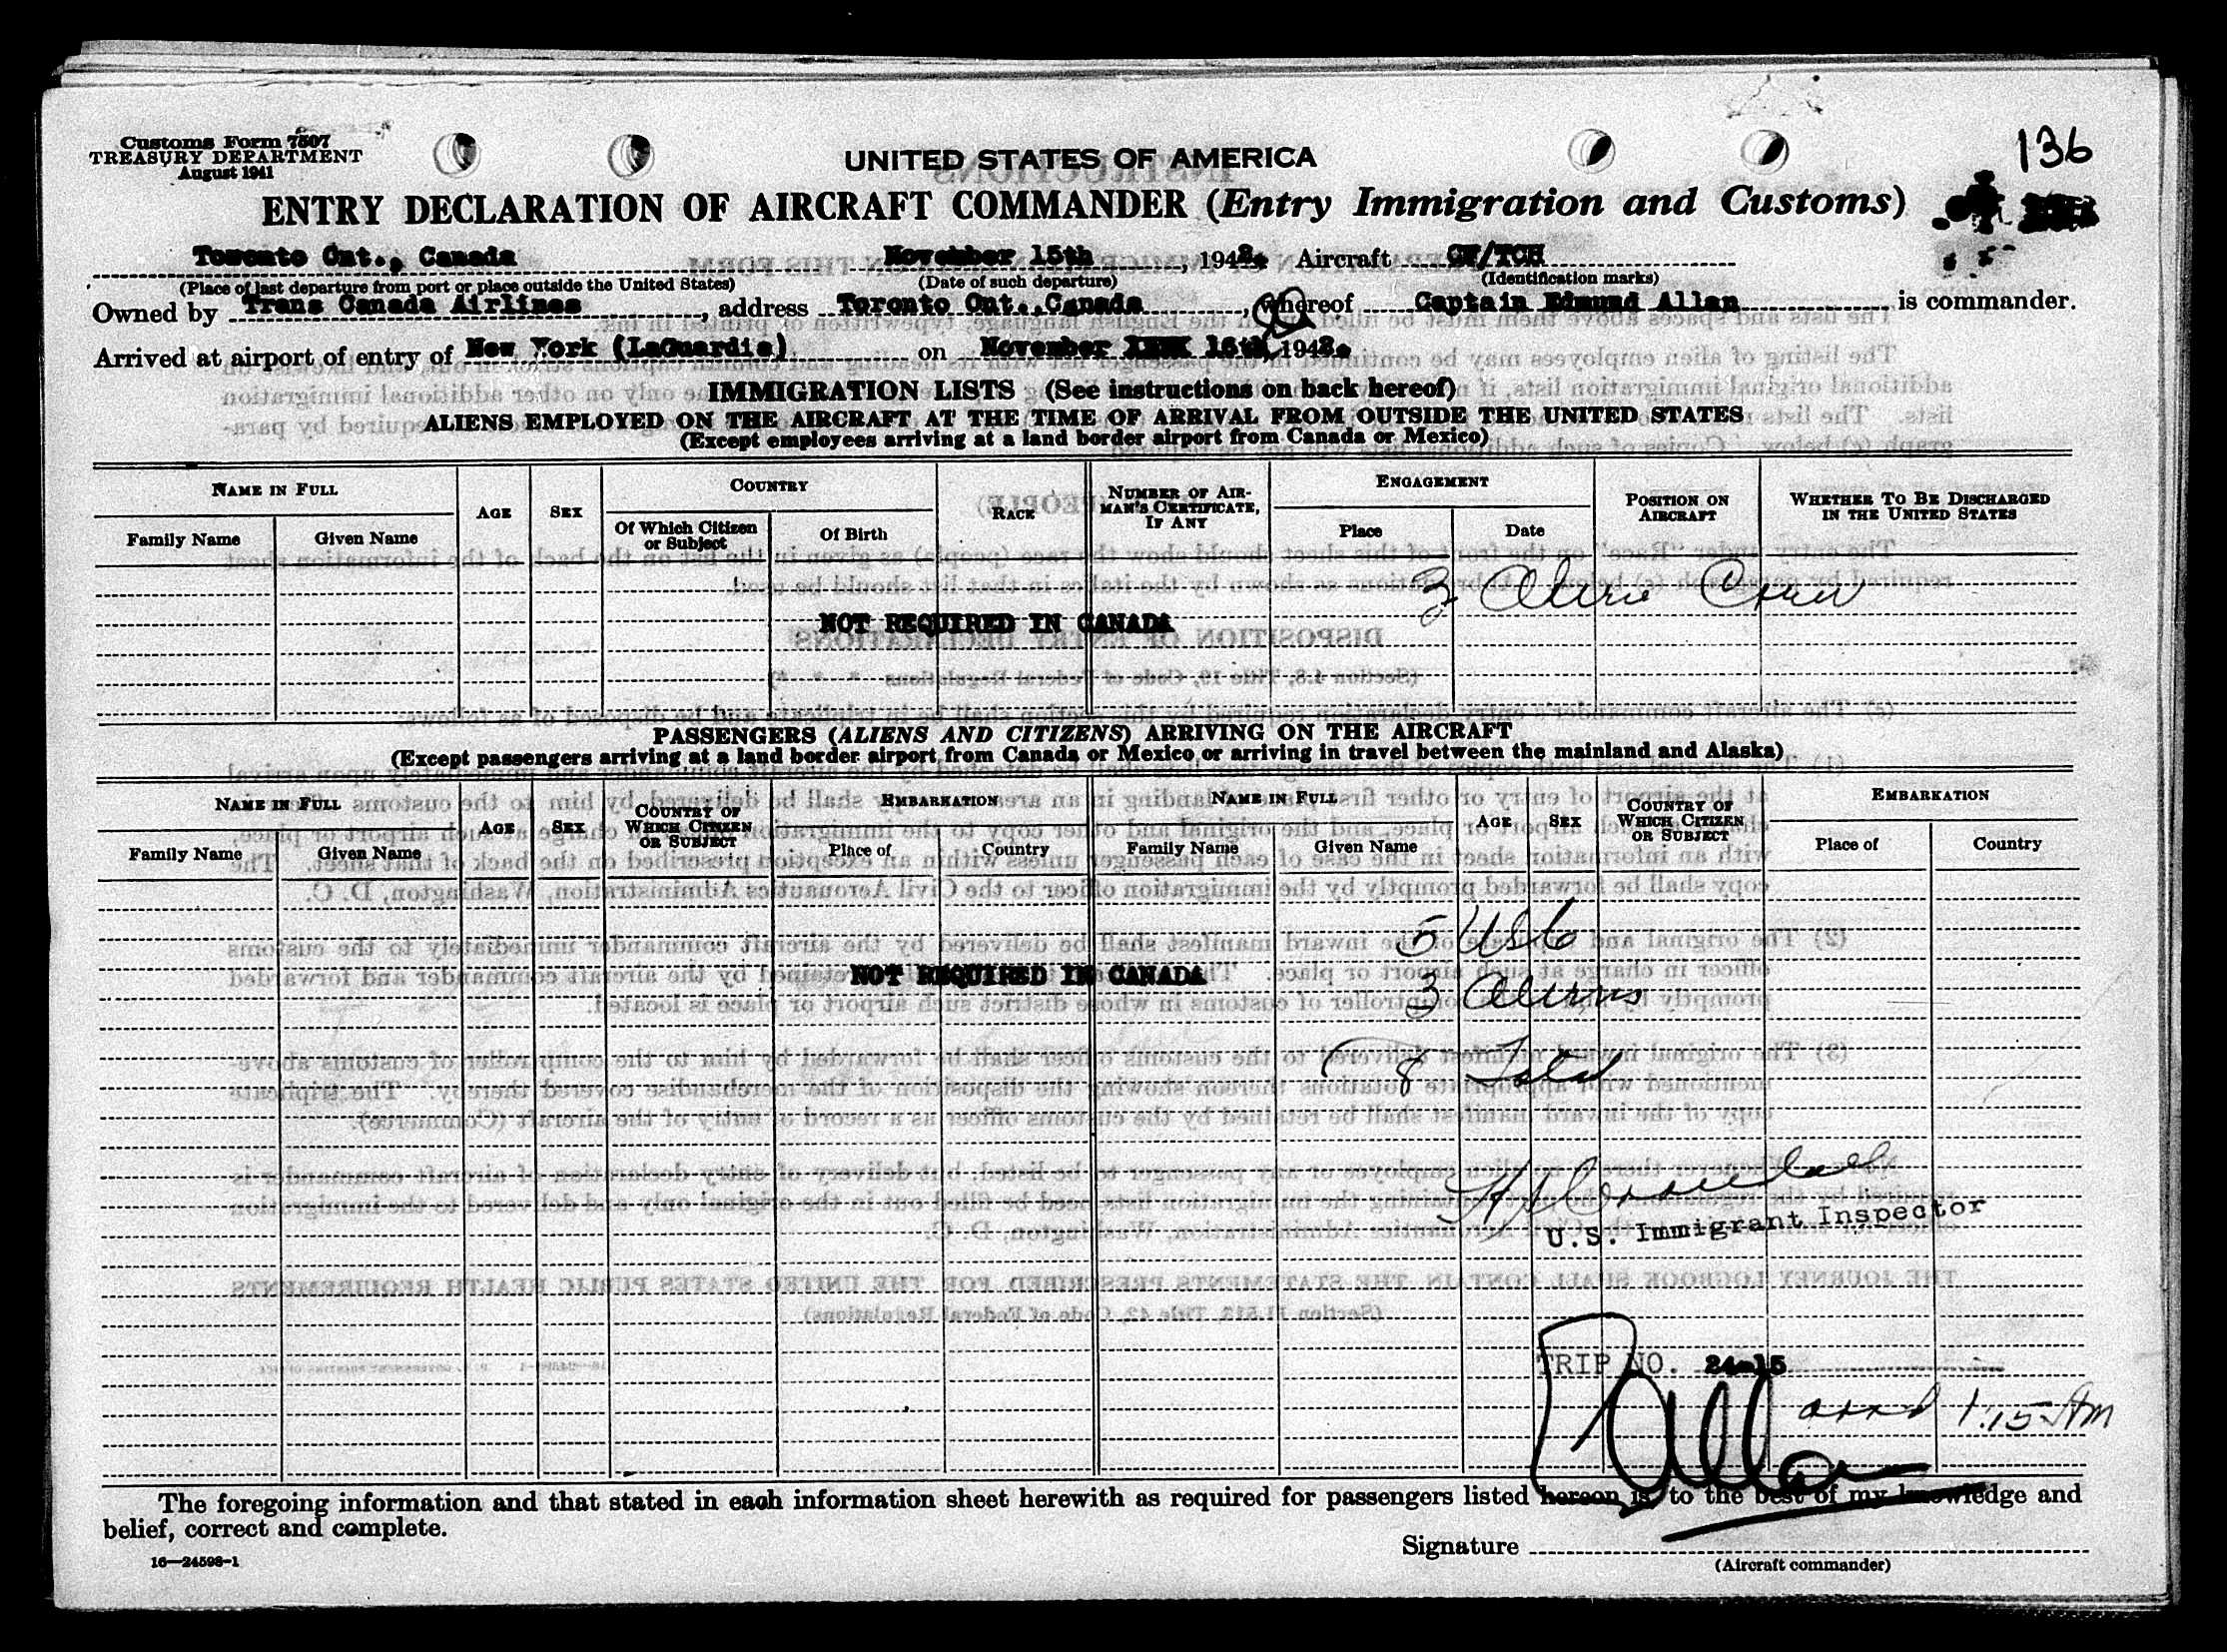 Customs Form 7507
TREASURY DEPARTMENT
August 1941
UNITED STATES OF AMERICA
136
ENTRY DECLARATION OF AIRCRAFT COMMANDER (Entry Immigration and Customs)
Toronto Ont., Canada November 15th, 1942. Aircraft CF/TCH
(Place of last departure from port or place outside the United States) (Date of such departure) (Identification marks)
Owned by Trans Canada Airlines, address Toronto Ont., Canada, whereof Captain Edmund Allan is commander.
Arrived at airport of entry of New York (LaGuardia) on November 16th, 1942.
IMMIGRATION LISTS (See instructions on back hereof)
ALIENS EMPLOYED ON THE AIRCRAFT AT THE TIME OF ARRIVAL FROM OUTSIDE THE UNITED STATES
(Except employees arriving at a land border airport from Canada or Mexico)
NAME IN FULL AGE SEX COUNTRY RACE NUMBER OF AIRMAN'S CERTIFICATE, IF ANY ENGAGEMENT POSITION ON AIRCRAFT WHETHER TO BE DISCHARGED IN THE UNITED STATES
Family Name Given Name Of Which Citizen or Subject Of Birth Place Date
3 Alien Crew
NOT REQUIRED IN CANADA
PASSENGERS (ALIENS AND CITIZENS) ARRIVING ON THE AIRCRAFT
(Except passengers arriving at a land border airport from Canada or Mexico or arriving in travel between the mainland and Alaska)
NAME IN FULL AGE SEX COUNTRY OF WHICH CITIZEN OR SUBJECT EMBARKATION NAME IN FULL AGE SEX COUNTRY OF WHICH CITIZEN OR SUBJECT EMBARKATION
Family Name Given Name Place of Country Family Name Given Name Place of Country
5 USC
NOT REQUIRED IN CANADA
3 Aliens
8 Total
U.S. Immigrant Inspector
TRIP NO. 24-15
arrd 1:15 AM
The foregoing information and that stated in each information sheet herewith as required for passengers listed hereon is, to the best of my knowledge and
belief, correct and complete.
Signature
(Aircraft commander)
16—24598-1